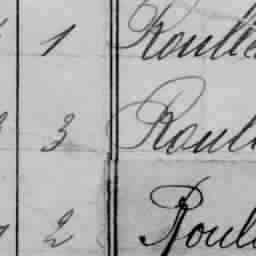 1 Roulle
3 Roul
2 Roul